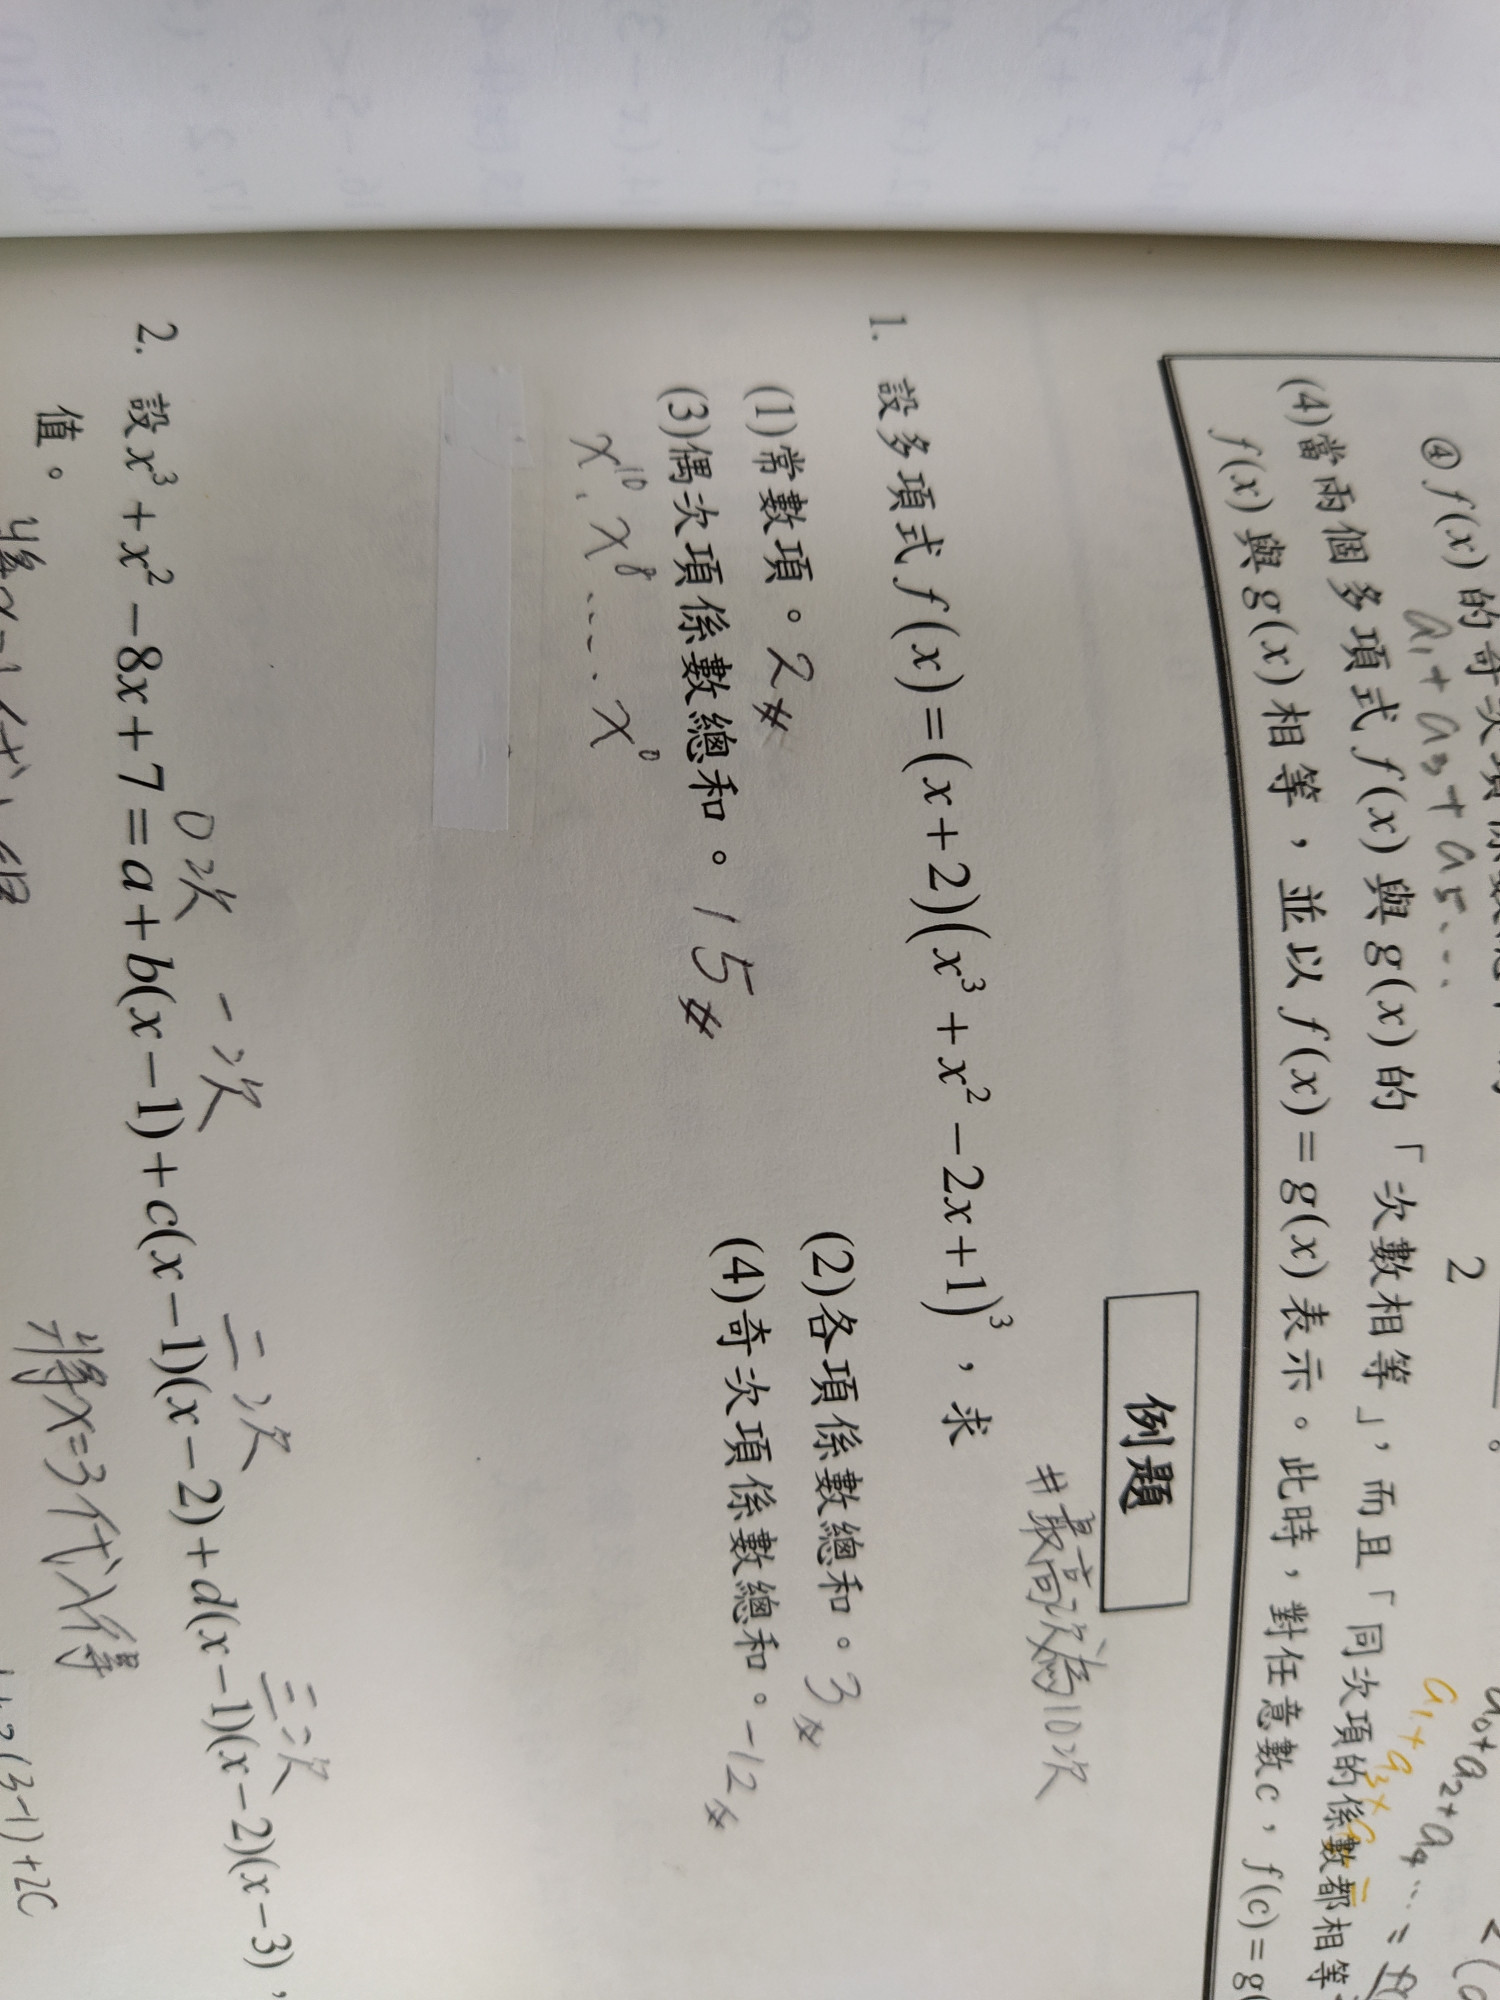 ④ f(x) 的奇次項係數
2
a₁+a₃+a₅...
a₀+a₂+a₄...=
a₁+a₃+
(4)當兩個多項式 f(x) 與 g(x) 的「次數相等」，而且「同次項的係數都相等
f(x) 與 g(x) 相等，並以 f(x)=g(x) 表示。此時，對任意數c，f(c)=g(
例題
#最高次為10次
1. 設多項式 f(x)=(x+2)(x³+x²−2x+1)³，求
(1)常數項。2#
(2)各項係數總和。3#
(3)偶次項係數總和。15#
(4)奇次項係數總和。-12#
x¹⁰、x⁸....x⁰
0次 一次 二次 三次
2. 設x³+x²−8x+7=a+b(x−1)+c(x−1)(x−2)+d(x−1)(x−2)(x−3)，
值。
將x=3代入得
(3-1)+2C